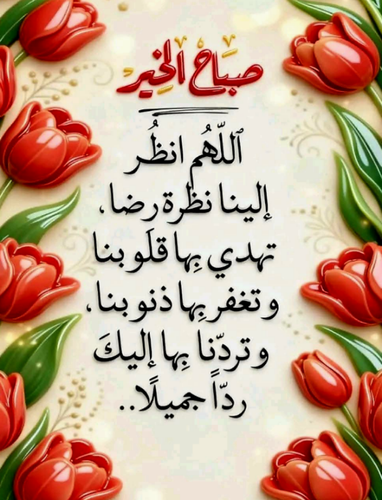 صباح الخير
اللّهُم انظُر
إلينا نظرة رِضا،
تهدي بِها قلَوبنا
وتغفر بِها ذنوبنا،
وتردّنا بِها إليكَ
ردّاً جميلًا..